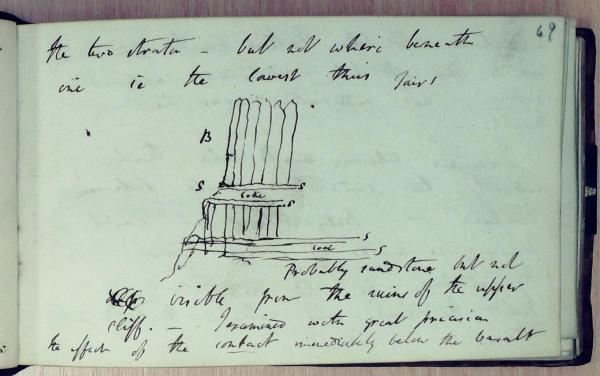 69
the two strata - but not where beneath
one is the lowest thus
B
S
S
Coke
S
S
Coal
S
Probably sandstone but not
visible from the ruins of the upper
cliff. - I examined with great precision
the effect of the contact immediately below the basalt